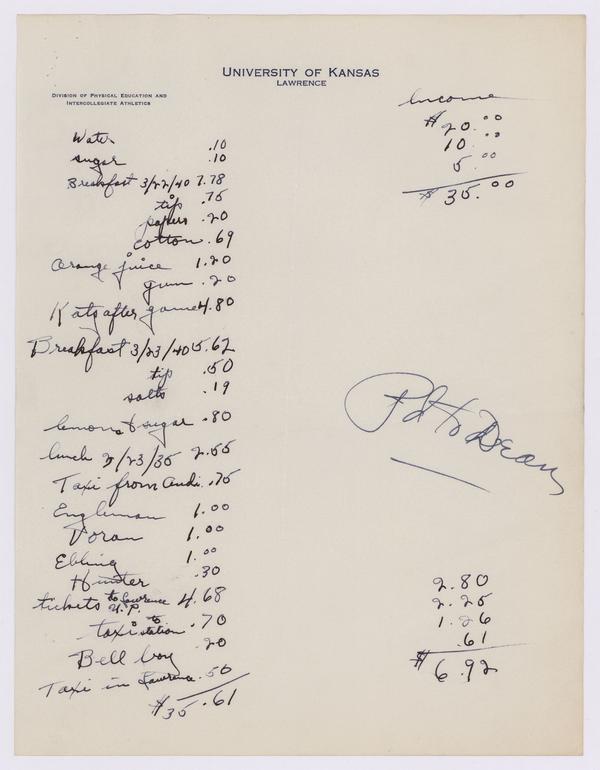 UNIVERSITY OF KANSAS
LAWRENCE
DIVISION OF PHYSICAL EDUCATION AND
INTERCOLLEGIATE ATHLETICS
Income
$ 20.00
10.00
5.00
$ 35.00
Water .10
sugar .10
Breakfast 3/22/40 7.78
tip .75
papers .20
cotton .69
Orange juice 1.20
gum .20
Katz after game 4.80
Breakfast 3/23/40 5.62
tip .50
salts .19
lemons & sugar .80
lunch 3/23/35 2.55
Taxi from Audi. .75
Engleman 1.00
Voran 1.00
Ebling 1.00
Hunter .30
tickets to Lawrence U.P. 4.68
taxi to station .70
Bell boy .20
Taxi in Lawrence .50
$ 35.61
Pd to Dean
2.80
2.25
1.26
.61
$ 6.92